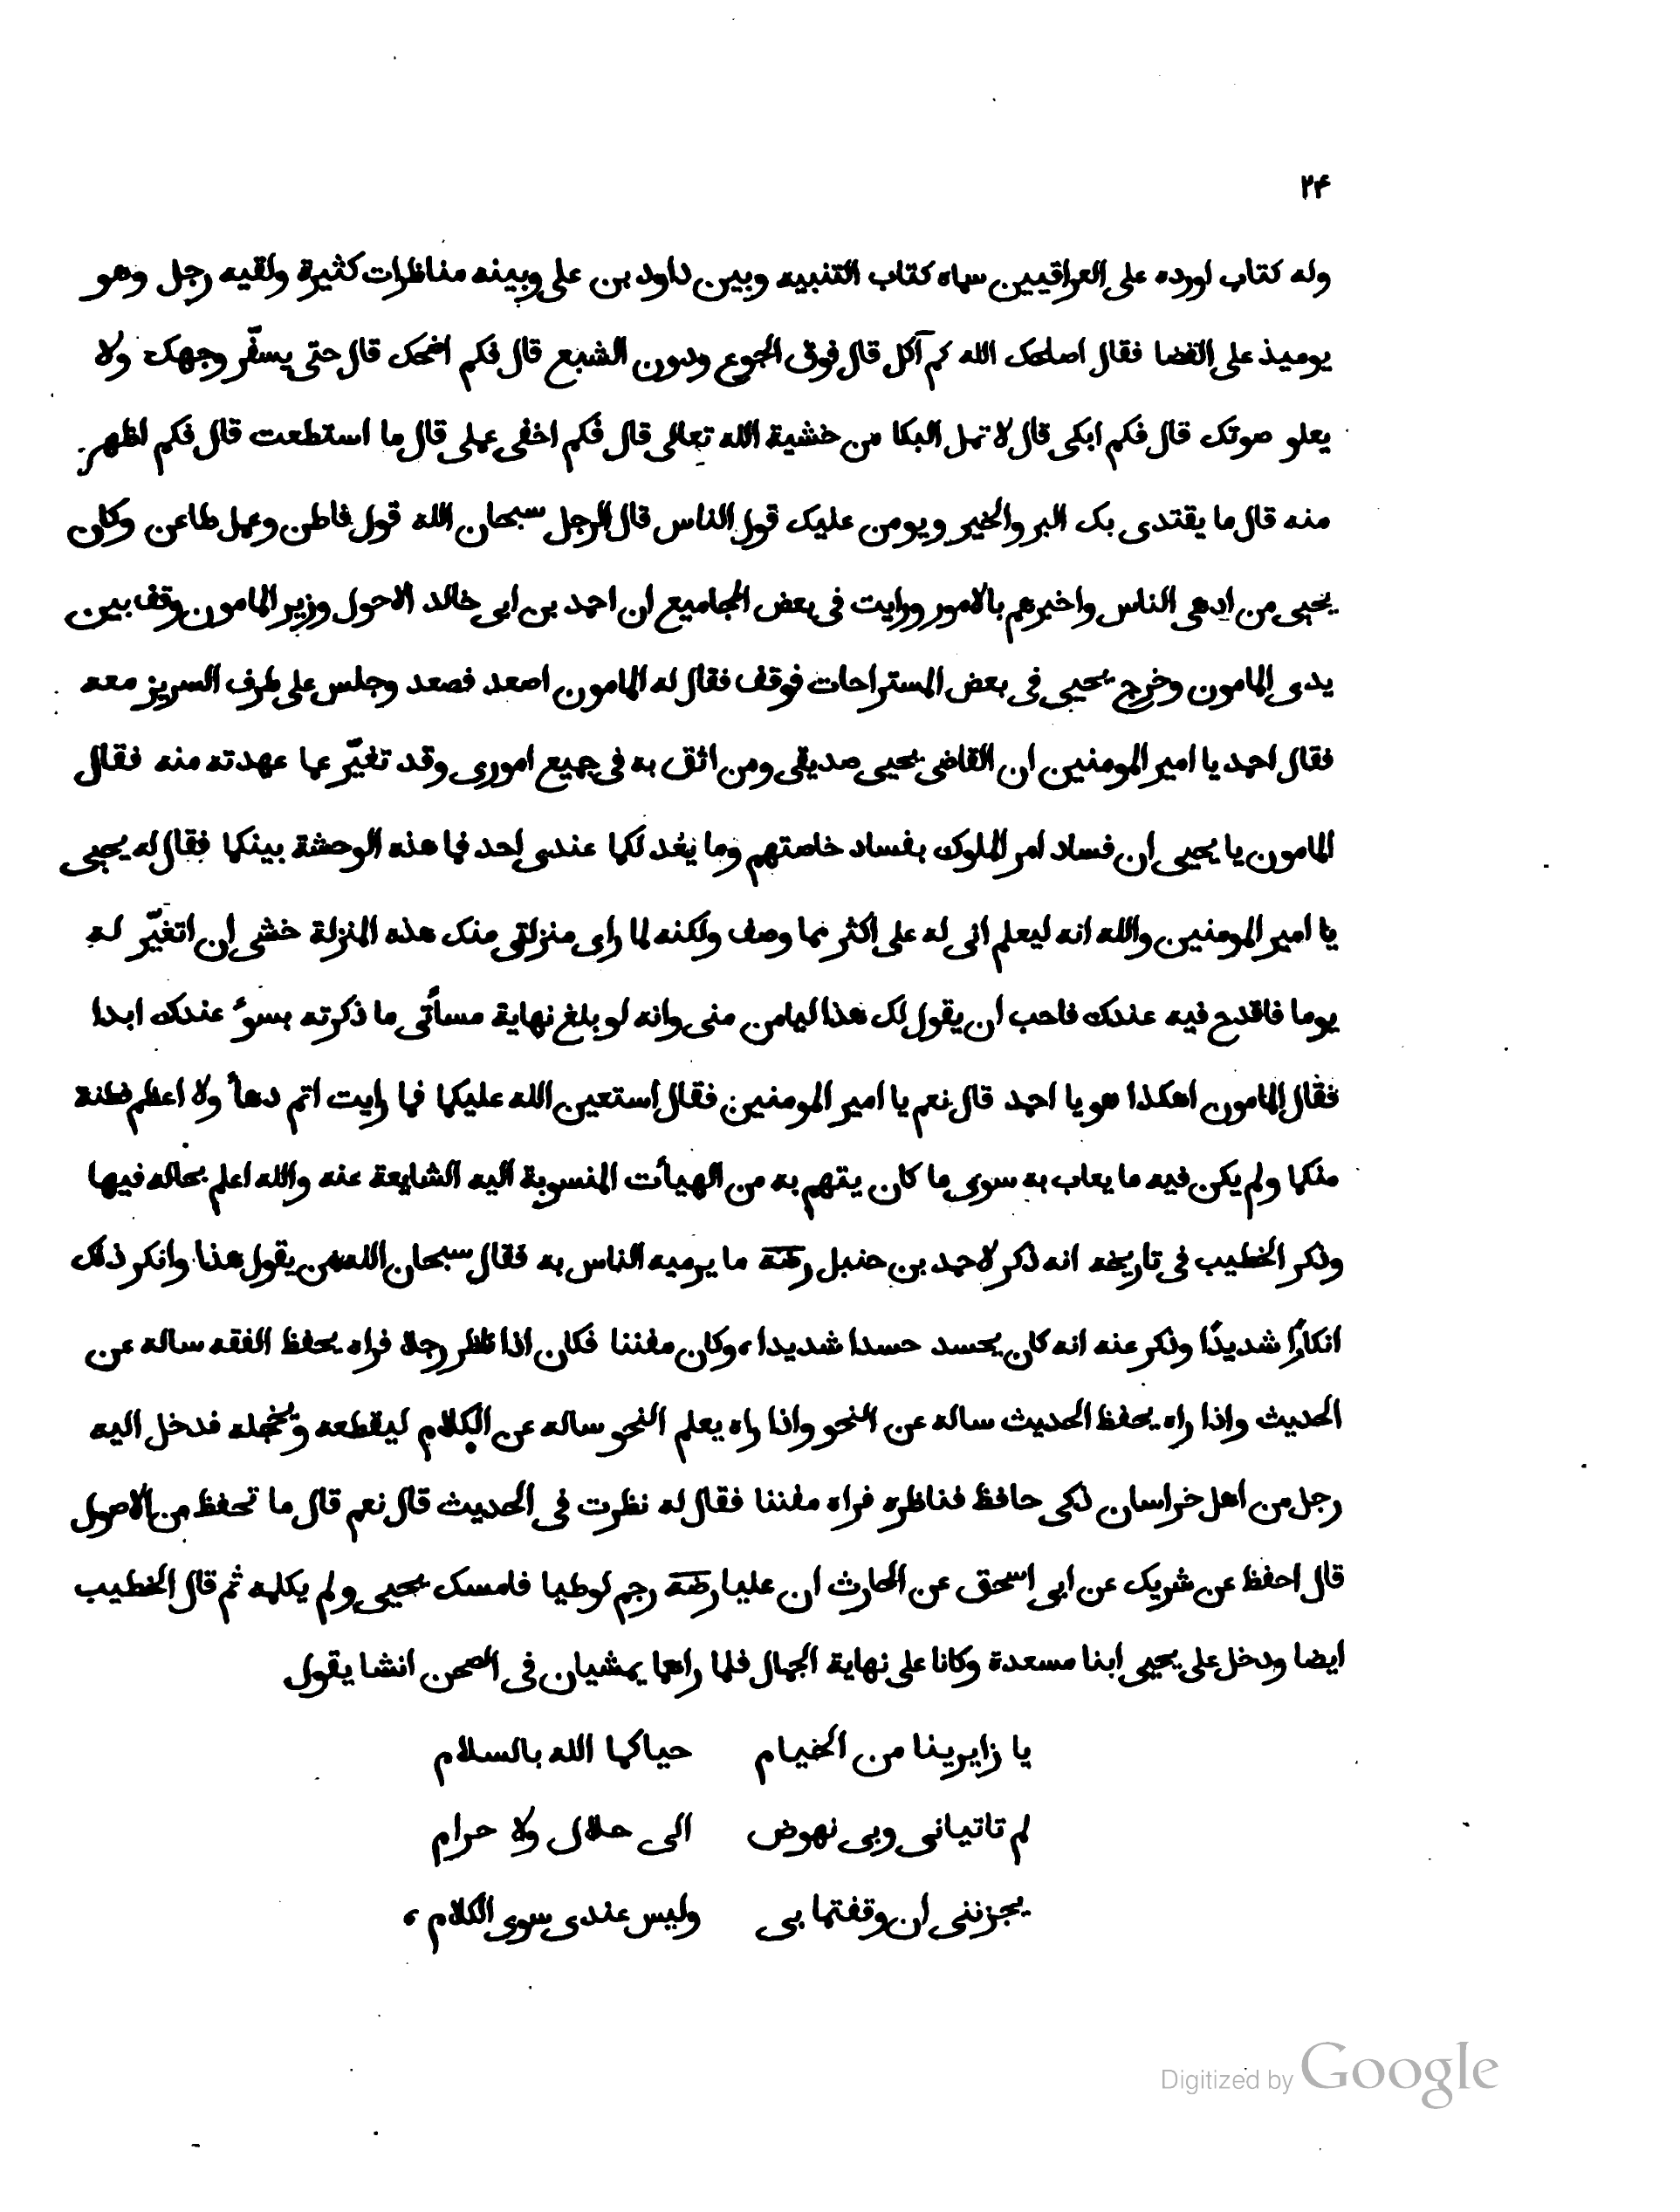 ٢۴
وله كتاب اورده على العراقيين سماه كتاب التنبيه وبين داود بن على وبينه مناظرات كثيرة ولقيه رجل وهو
يوميذ على القضا فقال اصلحك الله كم آكل قال فوق الجوع ودون الشبع قال فكم اضحك قال حتى يسفّر وجهك ولا
يعلو صوتك قال فكم ابكى قال لا تمل البكا من خشية الله تعالى قال فكم اخفى عملى قال ما استطعت قال فكم اظهر
منه قال ما يقتدى بك البر والخير ويومن عليك قول الناس قال الرجل سبحان الله قول قاطن وعمل ظاعن وكان
يحيى من ادهى الناس واخبرهم بالامور ورايت فى بعض المجاميع ان احمد بن ابى خالد الاحول وزير المامون وقف بين
يدى المامون وخرج يحيى فى بعض المستراحات فوقف فقال له المامون اصعد فصعد وجلس على طرف السرير معه
فقال احمد يا امير المومنين ان القاضى يحيى صديقى ومن اثق به فى جميع امورى وقد تغيّر عما عهدته منه فقال
المامون يا يحيى ان فساد امر الملوك بفساد خاصتهم وما يعد لكما عندى احد فما هذه الوحشة بينكما فقال له يحيى
يا امير المومنين والله انه ليعلم انى له على اكثر مما وصف ولكنه لما راى منزلتى منك هذه المنزلة خشى ان اتغيّر له
يوما فاقدح فيه عندك فاحب ان يقول لك هذا ليامن منى وانه لو بلغ نهاية مسأتى ما ذكرته بسوءً عندك ابدا
فقال المامون اهكذا هو يا احمد قال نعم يا امير المومنين فقال استعين الله عليكما فما رايت اتم دهأ ولا اعظم فطنة
منكما ولم يكن فيه ما يعاب به سوى ما كان يتهم به من الهيأت المنسوبة اليه الشايعة عنه والله اعلم بحاله فيها
وذكر الخطيب فى تاريخه انه ذكر لاحمد بن حنبل رضه ما يرميه الناس به فقال سبحان الله من يقول هذا وانكر ذلك
انكارًا شديدًا وذكر عنه انه كان يحسد حسدا شديدا، وكان مفننا فكان اذا ناظر رجلا فراه يحفظ الفقه ساله عن
الحديث واذا راه يحفظ الحديث ساله عن النحو واذا راه يعلم النحو ساله عن الكلام ليقطعه ويخجله فدخل اليه
رجل من اهل خراسان ذكى حافظ فناظره فراه مفننا فقال له نظرت فى الحديث قال نعم قال ما تحفظ من الاصول
قال احفظ عن شريك عن ابى اسحق عن الحارث ان عليا رضه رجم لوطيا فامسك يحيى ولم يكلمه ثم قال الخطيب
ايضا ودخل على يحيى ابنا مسعدة وكانا على نهاية الجمال فلما راهما يمشيان فى الصحن انشا يقول
يا زايرينا من الخيام حياكما الله بالسلام
لم تاتيانى وبى نهوض الى حلال ولا حرام
يحزننى ان وقفتما بى وليس عندى سوى الكلام،
Digitized by Google